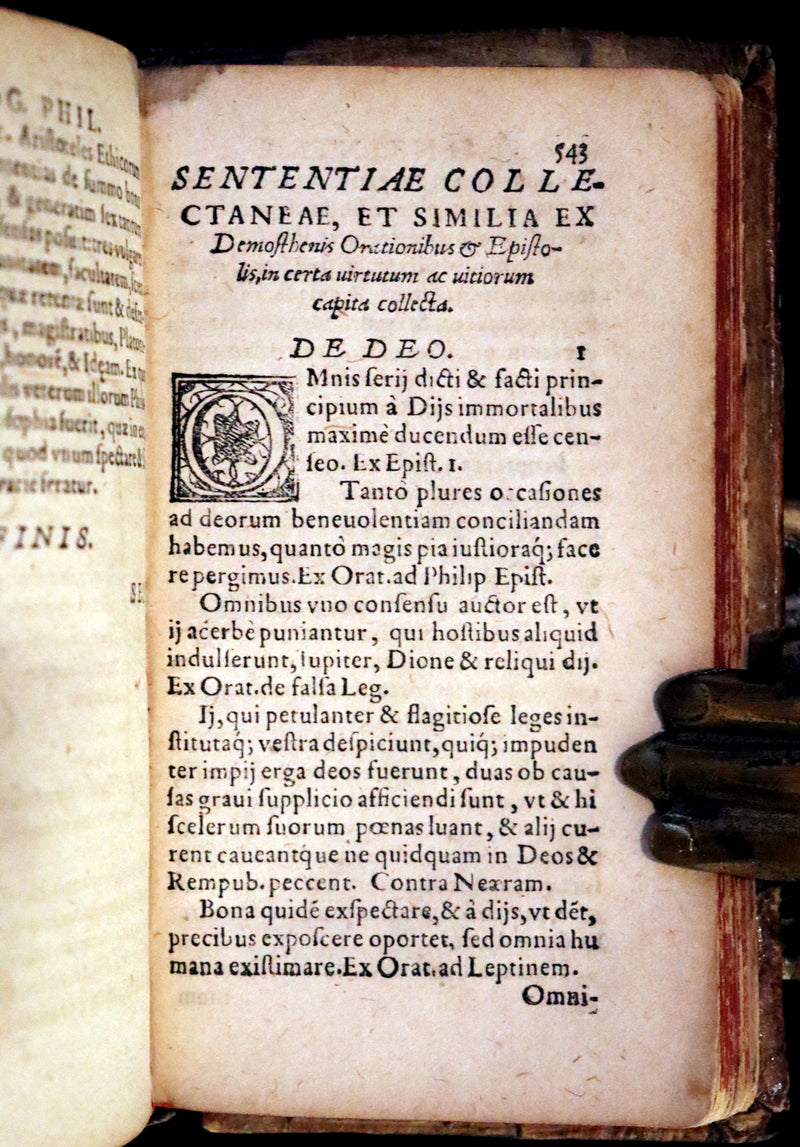 G. PHIL.
Aristoteles Ethicorum
de summo boni
& generatim sex
facultatem,
sunt & defin
magistratibus, Platon
honore, & Ideam. Ex
veterum illorum Phi
fuerit, quæ in e
quod vnum spectare
feratur.
FINIS.
SE
543
SENTENTIAE COLLE-
CTANEAE, ET SIMILIA EX
Demosthenis Orationibus & Episto-
lis,in certa uirtutum ac uitiorum
capita collecta.
DE DEO. 1
OMnis serij dicti & facti prin-
cipium à Dijs immortalibus
maximè ducendum esse cen-
seo. Ex Epist. 1.
Tantò plures occasiones
ad deorum beneuolentiam conciliandam
habemus,quantò magis pia iustioraq́; face
re pergimus.Ex Orat.ad Philip Epist.
Omnibus vno consensu auctor est, vt
ij acerbè puniantur, qui hostibus aliquid
indulserunt, Iupiter, Dione & reliqui dij.
Ex Orat.de falsa Leg.
Ij,qui petulanter & flagitiose leges in-
stitutaq́; vestra despiciunt,quiq́; impuden
ter impij erga deos fuerunt, duas ob cau-
sas graui supplicio afficiendi sunt, vt & hi
scelerum suorum pœnas luant, & alij cu-
rent caueantq́ue ne quidquam in Deos &
Rempub. peccent. Contra Neæram.
Bona quidē exspectare,& à dijs,vt dēt,
precibus exposcere oportet, sed omnia hu
mana existimare.Ex Orat.ad Leptinem.
Omni-